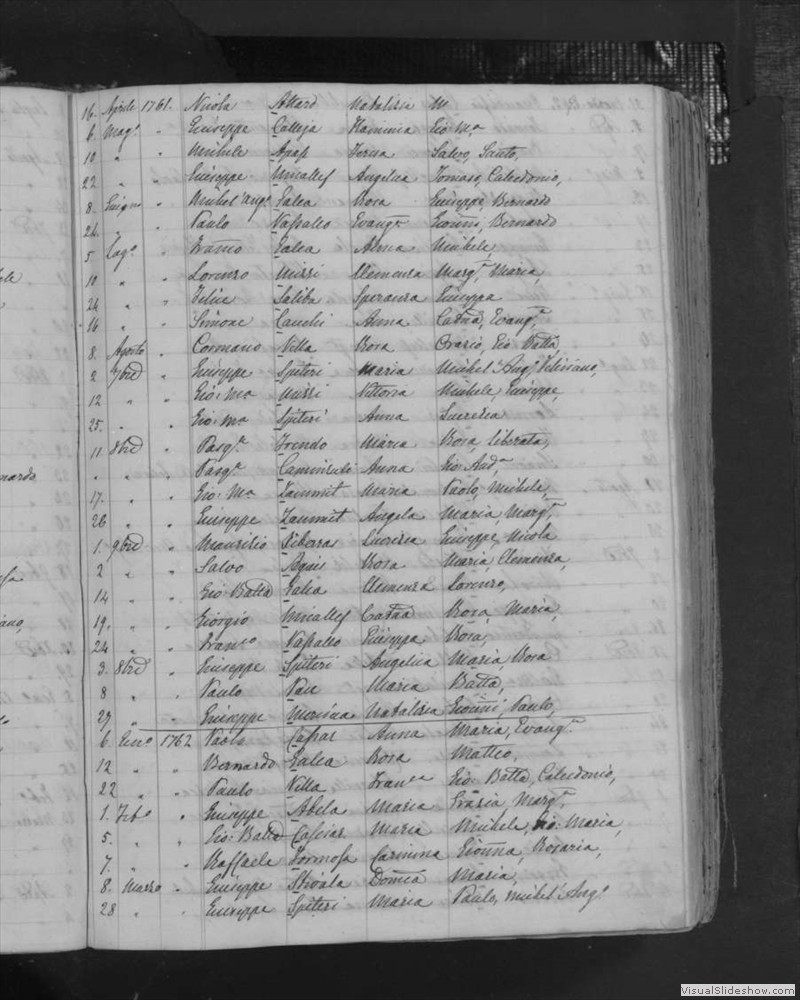 16. Aprile 1761. Nicola Attard Natalizia M
6. Magº " Giuseppe Calleja Flaminia Gio: Mª
10 " " Michele Apap Teresa Salvo, Santo,
22 " " Giuseppe Micallef Angelica Tomaso, Calcedonio,
8. Giugno " Michel'Angº Galea Rosa Giuseppe, Bernardo
24. " " Paulo Vassallo Evangª Gionni, Bernardo
5 Lugº " Franco Galea Anna Michele,
10 " " Lorenzo Mizzi Clemenza Margª, Maria,
24 " " Felice Saliba Speranza Giuseppa
16 " " Simone Cauchi Anna Catna, Evangª,
8. Agosto " Cormano Villa Rosa Orazio, Gio Batta
2 7bre " Giuseppe Spiteri Maria Michel'Angº, Feliciano,
12 " " Gio: Ma Mizzi Vittoria Michele, Giuseppe,
25. " " Gio: Ma Spiteri Anna Lucrezia
11. 8bre " Pasqª Frendo Maria Rosa, Liberata,
" " " Pasqª Anna Gio: Andª
17. " " Gio: Ma Zammit Maria Paolo, Michele,
26 " " Giuseppe Zammit Angela Maria, Margª,
1. 9bre " Maurizio Piborras Lucrezia Giuseppe, Nicola
2 " " Salvo Agius Rosa Maria, Clemenza,
14 " " Gio: Batta Galea Clemenza Lorenzo,
19. " " Giorgio Micallef Catna Rosa, Maria,
24 " " Franco Vassallo Giuseppa Rosa,
3. Xbre " Giuseppe Spiteri Angelica Maria, Rosa
8 " " Paulo Pau Maria Batta,
27 " " Giuseppe Natalizia Gionni, Paulo,
6. Genº 1762 Paolo Cassar Anna Maria, Evangª.
12 " " Bernardo Galea Rosa Matteo,
22 " " Paulo Villa Franca Gio: Batta, Calcedonio,
1. Febº " Giuseppe Abela Maria Grazia, Margª.
5. " " Gio: Batta Maria Michele, Gio: Maria,
7. " " Raffaele Formosa Carinina Gionna, Rosaria,
8. Marzo " Giuseppe Domca Maria,
28 " " Giuseppe Spiteri Maria Paulo, Michel'Angº
VisualSlideshow.com